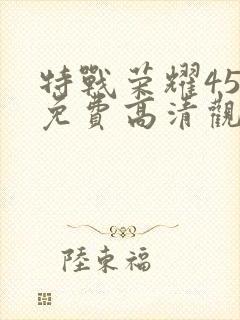 特戰荣耀45
免費高清觀
陸東福